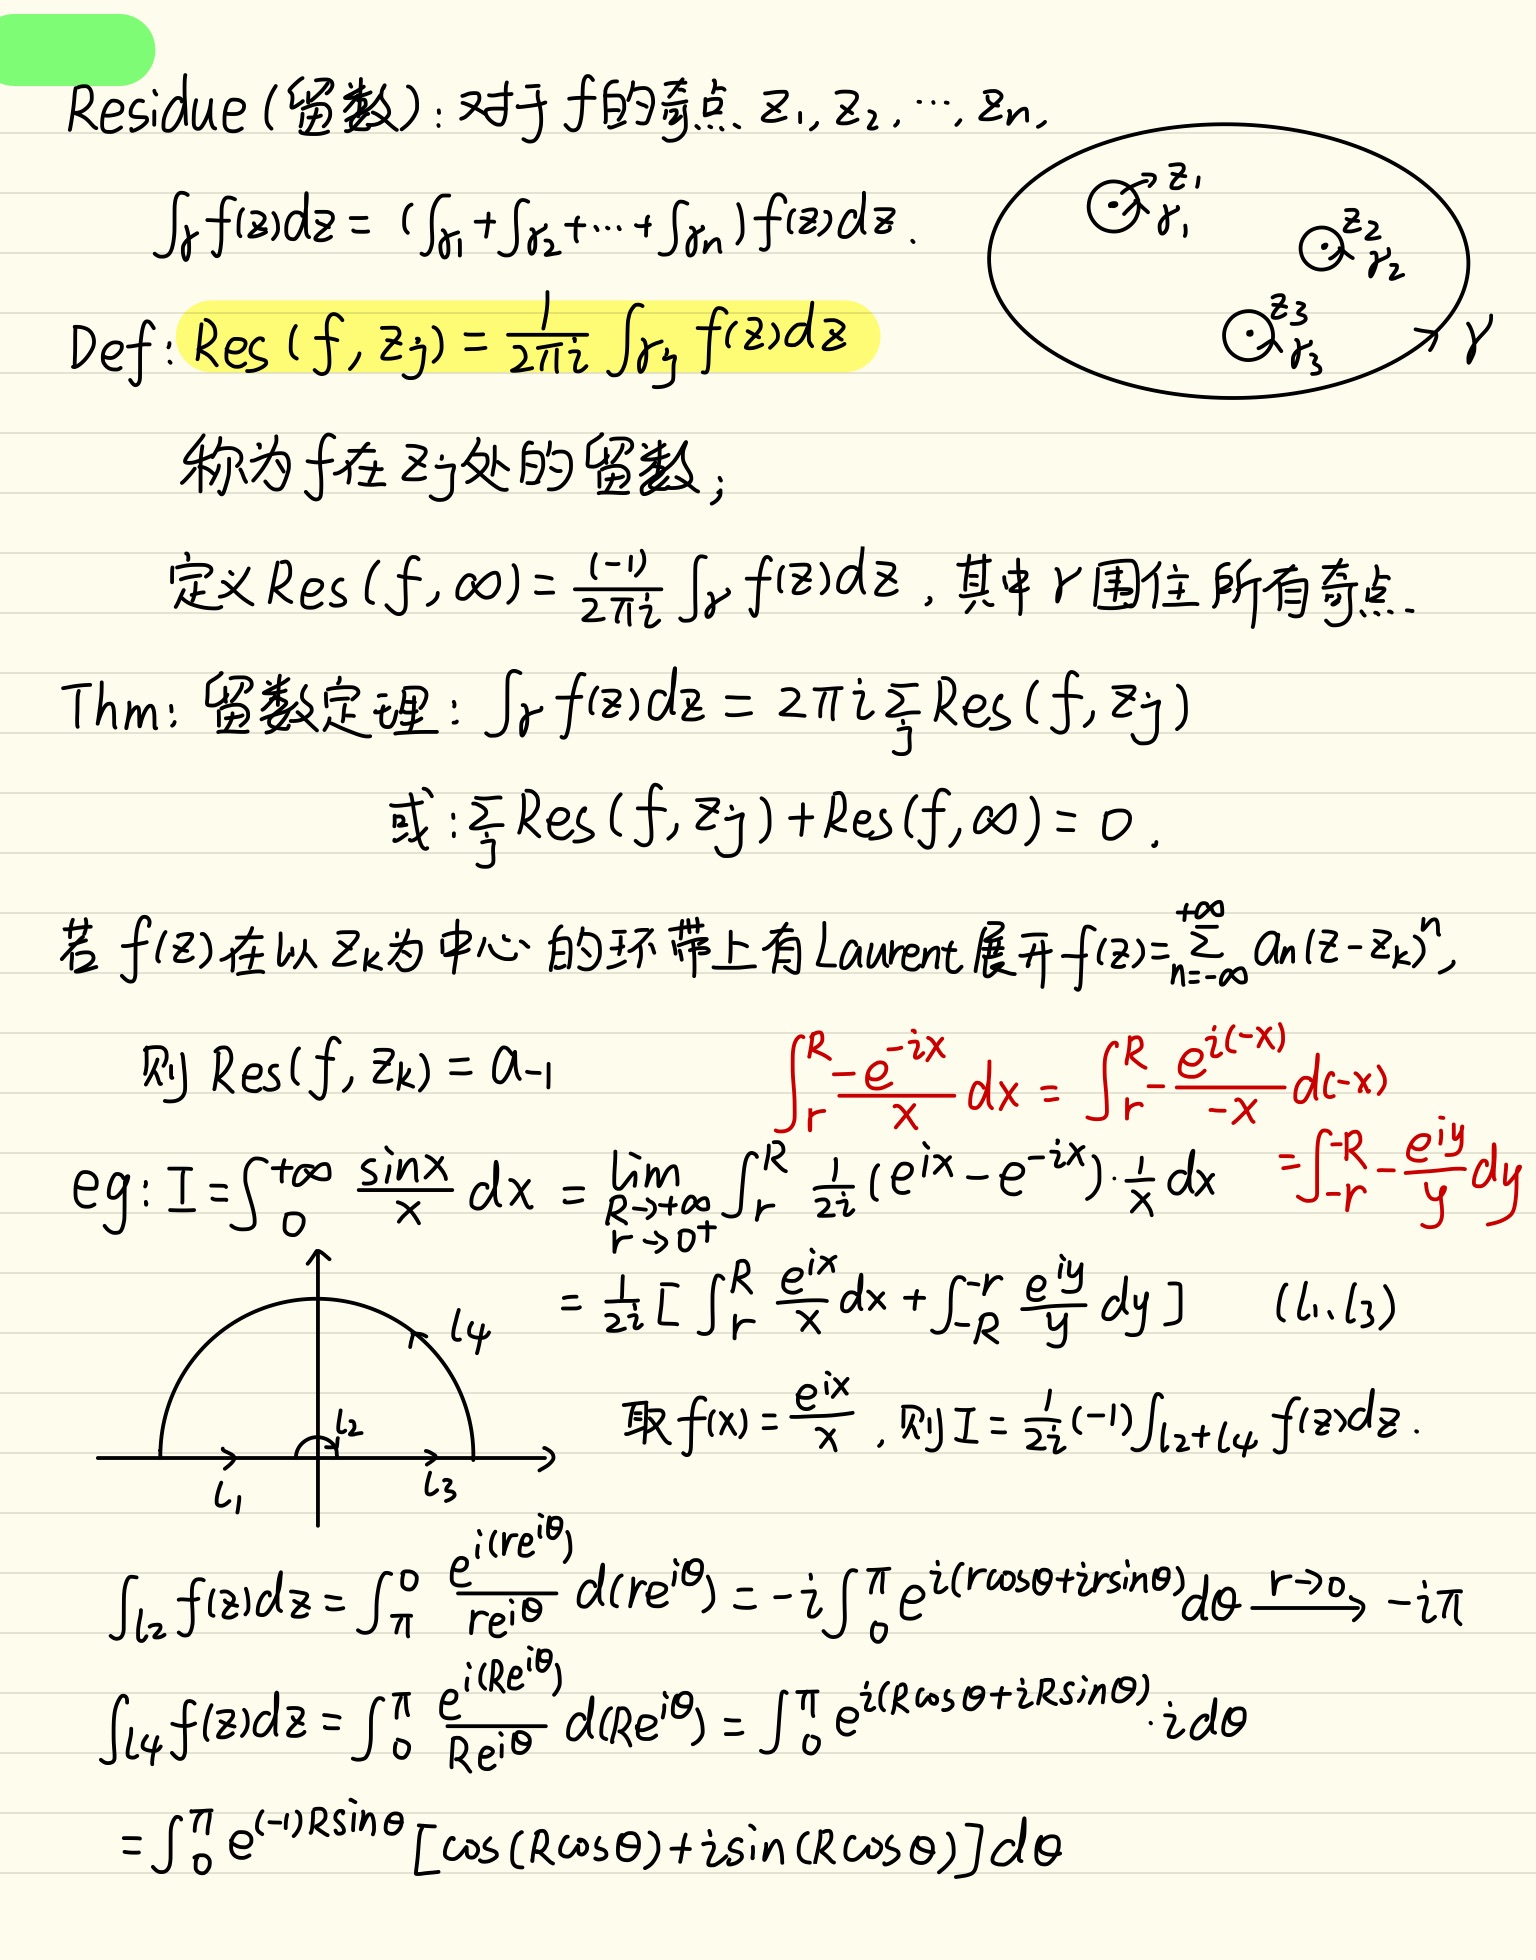 Residue (留数): 对于 f 的奇点 z₁, z₂, ⋯, zₙ,
∫_γ f(z)dz = (∫_γ₁ + ∫_γ₂ + ⋯ + ∫_γₙ) f(z)dz.
z₁
γ₁
z₂
γ₂
z₃
γ₃
γ
Def: Res (f, zⱼ) = 1/(2πi) ∫_γⱼ f(z)dz
称为 f 在 zⱼ 处的留数;
定义 Res(f, ∞) = (-1)/(2πi) ∫_γ f(z)dz, 其中 γ 围住所有奇点.
Thm: 留数定理: ∫_γ f(z)dz = 2πi Σ_j Res(f, zⱼ)
或: Σ_j Res(f, zⱼ) + Res(f, ∞) = 0.
若 f(z) 在以 z_k 为中心的环带上有 Laurent 展开 f(z) = Σ_{n=-∞}^{+∞} aₙ(z-z_k)ⁿ,
则 Res(f, z_k) = a₋₁
∫_r^R -e^{-ix}/x dx = ∫_r^R - e^{i(-x)}/(-x) d(-x)
= ∫_{-r}^{-R} - e^{iy}/y dy
eg: I = ∫_0^{+∞} sinx/x dx = lim_{R→+∞, r→0⁺} ∫_r^R 1/(2i) (e^{ix} - e^{-ix}) · 1/x dx
= 1/(2i) [ ∫_r^R e^{ix}/x dx + ∫_{-R}^{-r} e^{iy}/y dy ] (l₁、l₃)
l₄
l₂
l₁
l₃
取 f(x) = e^{ix}/x, 则 I = 1/(2i) (-1) ∫_{l₂+l₄} f(z)dz.
∫_{l₂} f(z)dz = ∫_π^0 e^{i(re^{iθ})}/(re^{iθ}) d(re^{iθ}) = -i ∫_0^π e^{i(rcosθ+irsinθ)} dθ r→0 → -iπ
∫_{l₄} f(z)dz = ∫_0^π e^{i(Re^{iθ})}/(Re^{iθ}) d(Re^{iθ}) = ∫_0^π e^{i(Rcosθ+iRsinθ)} · i dθ
= ∫_0^π e^{(-1)Rsinθ} [cos(Rcosθ) + isin(Rcosθ)] dθ